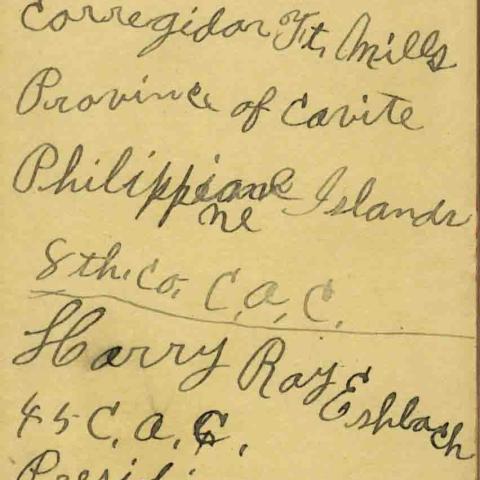 Corregidor Ft. Mills
Province of Cavite
Philippiane Islands
ne
8th. Co. C. A. C.
Harry Ray Eshbach
45 C. A. C.
Presidi